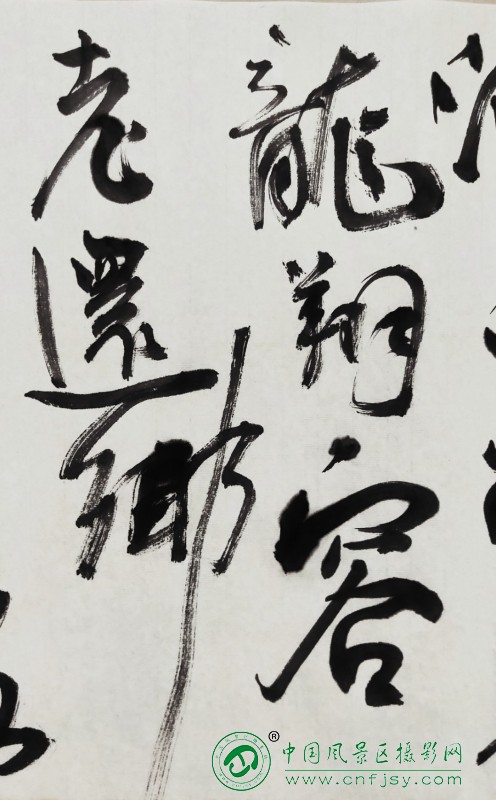 龍翔容
老還鄉
®
中国风景区摄影网
www.cnfjsy.com